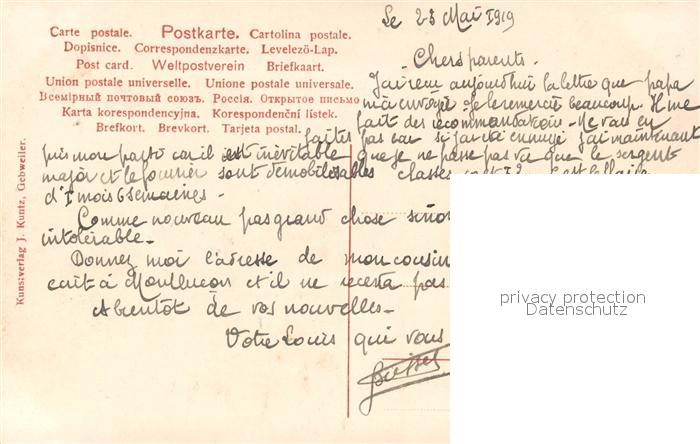 Carte postale. Postkarte. Cartolina postale.
Dopisnice. Correspondenzkarte. Levelező-Lap.
Post card. Weltpostverein Briefkaart.
Union postale universelle. Unione postale universale.
Всемірный почтовый союзъ. Россія. Открытое письмо
Karta korespondencyjna. Korespondenční lístek.
Brefkort. Brevkort. Tarjeta postal.
Kunstverlag J. Kuntz, Gebweiler.
Le 23 Mai 1919
Chers parents.
J'ai reçu aujourd'hui la lettre que papa
m'a envoyé. Je le remercie beaucoup. Il me
fait des recommandations. Ne vous en
faites pas car si j'ai été ennuyé j'ai maintenant
pris mon parti car il est inévitable que je ne passe pas vu que le sergent
major et le fourrier sont démobilisables classes
d'I mois 6 semaines.
Comme nouveau pas grand chose sinon
intolérable.
Donnez moi l'adresse de mon cousin
était à Montluçon et il ne restera pas
A bientôt de vos nouvelles.
Votre Louis qui vous
privacy protection
Datenschutz